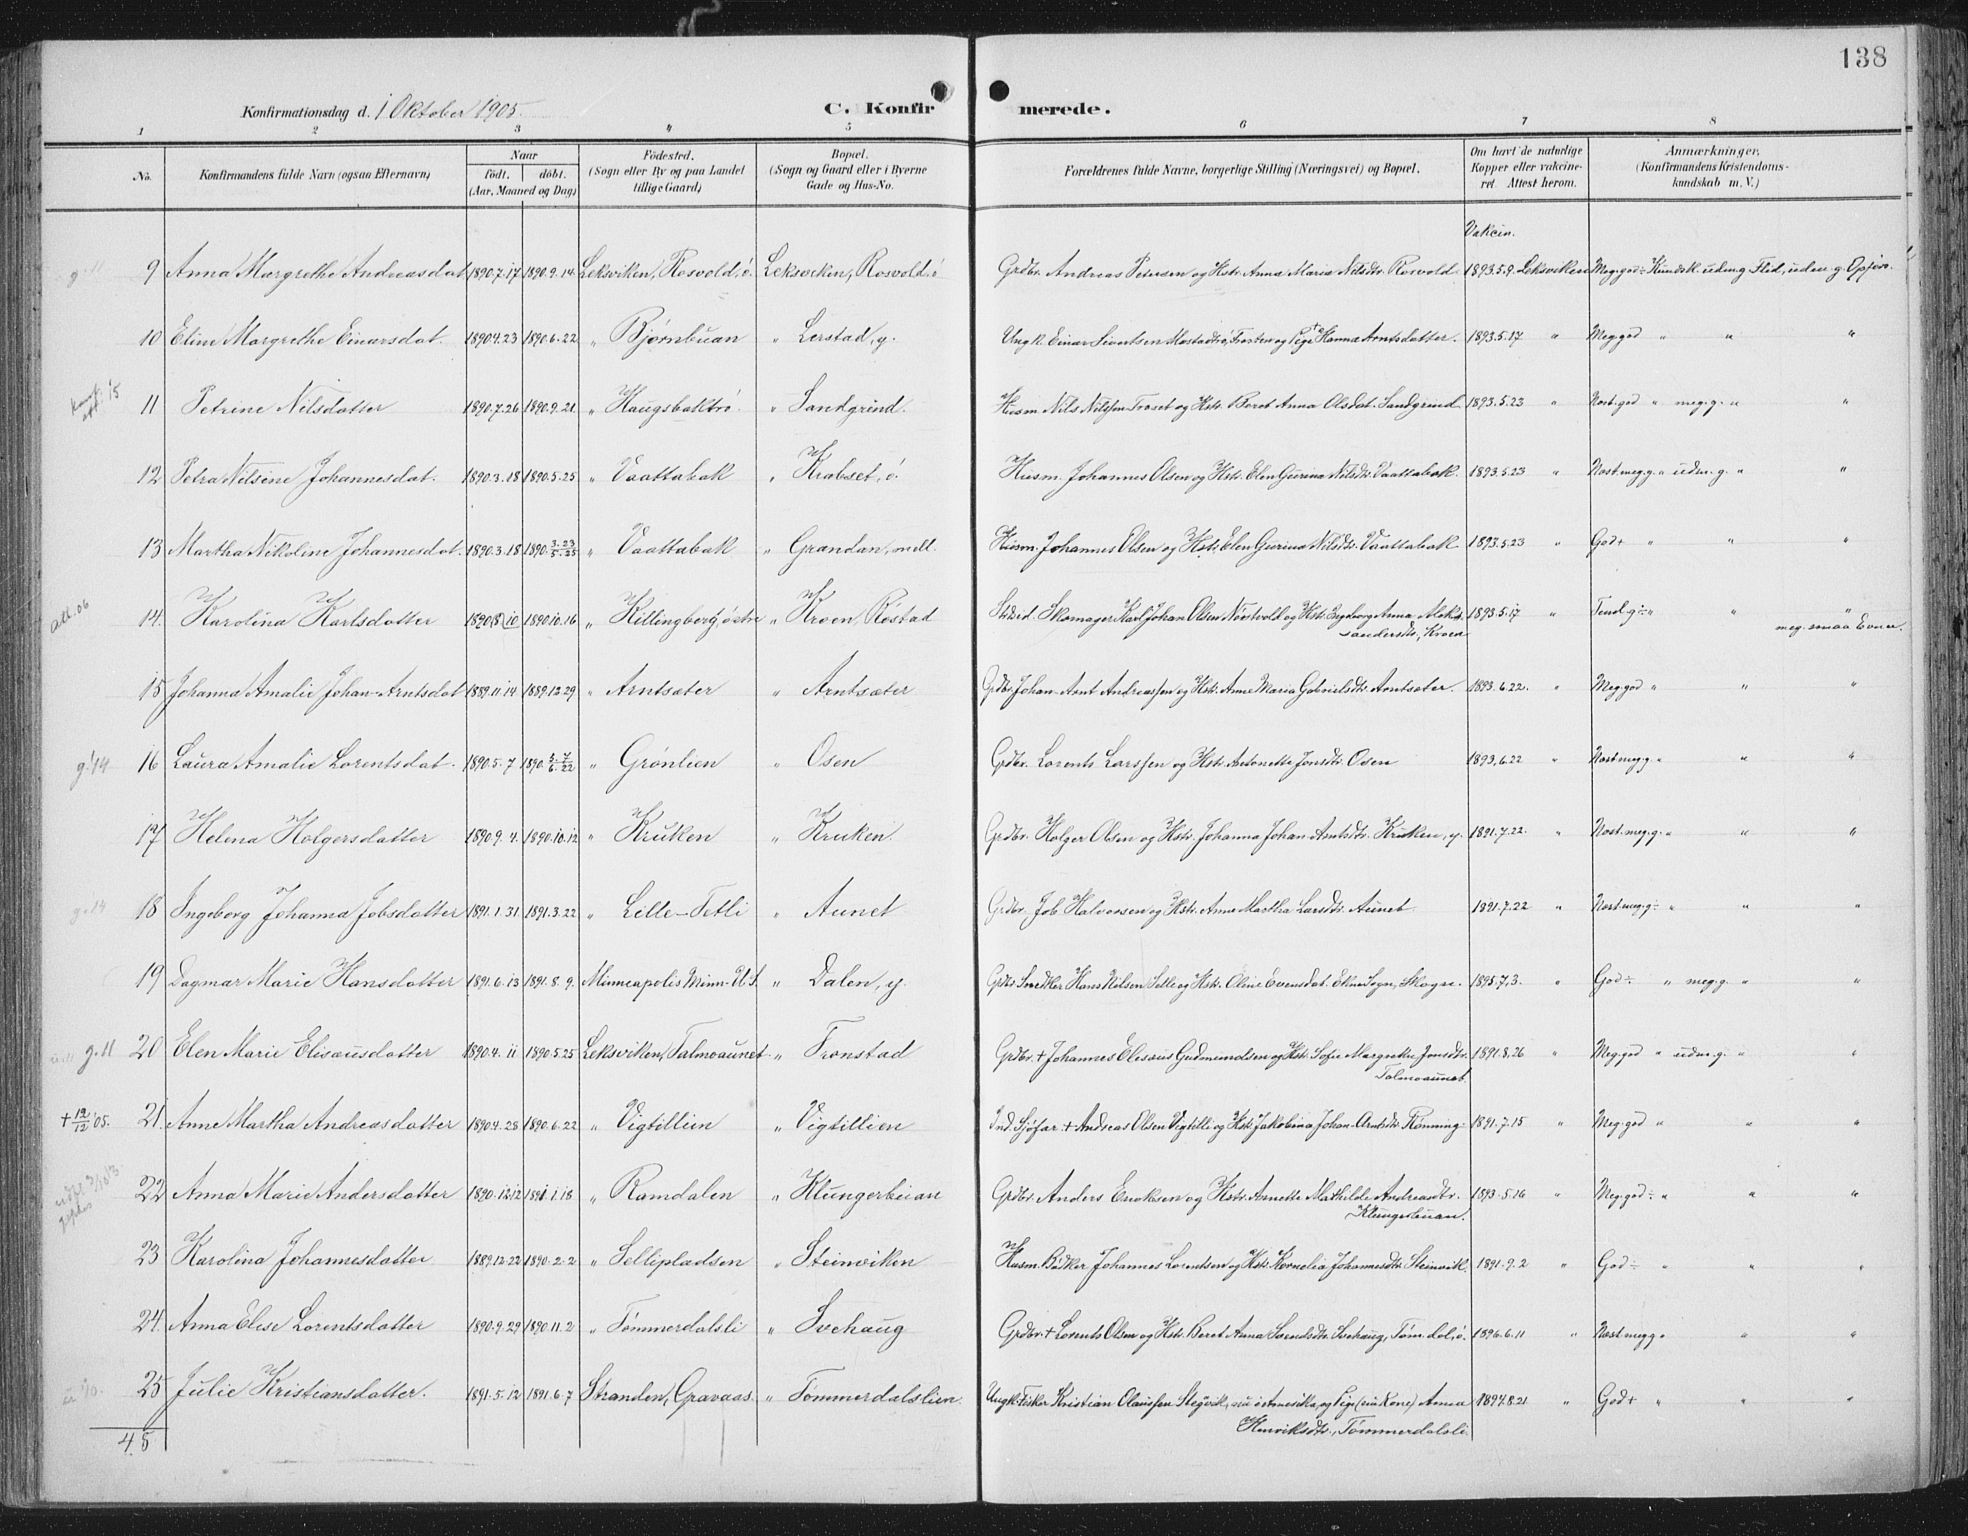 138
Konfirmationsdag d. 1 Oktober 1905. C. Konfir merede.
1 2 3 4 5 6 7 8
No. Konfirmandens fulde Navn (ogsaa Efternavn) Naar født. døbt. (Aar, Maaned og Dag) Fødested. (Sogn eller By og paa Landet tillige Gaard) Bopæl. (Sogn og Gaard eller i Byerne Gade og Hus-No. Forældrenes fulde Navne, borgerlige Stilling (Næringsvei) og Bopæl. Om havt de naturlige Kopper eller vakcineret. Attest herom. Anmærkninger, (Konfirmandens Kristendomskundskab m. V.)
Vakcin.
9 Anna Margrethe Andreasdat 1890.7.17 1890.9.14 Leksviken, Rosvold, ö. Leksviken, Rosvold, ö Grdbr. Andreas Petersen og Hstr. Anna Maria Nilsdtr. Rosvold 1893.5.9. Leksviken Meg.god÷ Kundsk. udm.g. Flid, uden g. Opførs.
10 Eline Margrethe Einarsdat. 1890.4.23 1890.6.22 " Bjørnbuan " Lerstad, y. Ungk. Einar Sivertsen Mostadtrö, Frosten og Pige Hanna Arntsdatter. 1893.5.17 " Meg.god " " "
11 Petrine Nilsdatter 1890.7.26 1890.9.21 " Haugsbaktrö. " Sandgrind. Husm. Nils Nilssen Traset og Hstr. Beret Anna Olsdat. Sandgrind 1893.5.23 " Næst.god " meg.g. " "
12 Petra Nilsine Johannesdat. 1890.3.18 1890.5.25 " Vaattabak " Krabset, ö. Husm. Johannes Olsen og Hstr. Elen Gurina Nilsdtr. Vaattabak. 1893.5.23 " Næst.meg.g. " udm.g. " "
13 Martha Nikoline Johannesdat. 1890.3.18 1890. 3.23/5.25 " Vaattabak " Grandan, mell. Husm. Johannes Olsen og Hstr. Elen Gurina Nilsdtr. Vaattabak 1893.5.23 " God+ " " "
att. 06 14. Karolina Karlsdatter 1890.8.10 1890.10.16 " Killingberg, östre " Kroen, Röstad Skomager Karl Johan Olsen Nöstvold og Hstr. Ingeborg Anna Aleksandersdtr, Kroen 1893.5.17 " Temd.g÷ " " " meg. smaa Evner.
15 Johanna Amalie Johan-Arntsdat 1889.11.14 1889.12.29 " Arntsæter " Arntsæter Grdbr. Johan-Arnt Andreassen og Hstr. Anne Maria Gabrielsdtr. Arntsæter. 1893.6.22. " Meg.god " " "
g.14 16 Laura Amalie Lorentsdat. 1890.5.7 1890. 5.7/6.22 " Grönlien " Osen Grdbr. Lorents Larssen og Hstr. Antonette Jonsdtr. Osen 1893.6.22 " Næst.meg.g. " " "
17 Helena Holgersdatter 1890.9.4. 1890.10.12 " Kruken " Kruken Grdbr. Holger Olsen og Hstr. Johanna Johan-Arntsdtr. Kruken, y. 1891.7.22. " Næst.meg.g. " " "
g.14 18 Ingeborg Johanna Jobsdatter 1891.1.31. 1891.3.22 " Lille-Tetli " Aunet Grdbr. Job Halvorsen og Hstr. Anne Martha Larsdtr. Aunet 1891.7.22 " Næst.meg.g÷ " " "
19 Dagmar Marie Hansdatter 1891.6.13 1891.8.9. Minneapolis Minn. U.S. " Dalen, y. Snedker Hans Nilsen Selle og Hstr. Oline Evensdat. Ekne Sogn, Skogn. 1895.7.3. " God÷ " meg.g. " "
g.11 20 Elen Marie Elisæusdatter 1890.4.11 1890.5.25 Leksviken, Talmoaunet " Tronstad Grdbr. + Johannes Elisæus Gudmundsen og Hstr. Sofie Margrethe Jonsdtr. Talmoaunet. 1891.8.26 " Meg.god " udm.g. " "
+ 12/12 '05. 21. Anne Martha Andreasdatter 1890.4.28 1890.6.22 " Vigtillien " Vigtillien Ind. Sjöfar. + Andreas Olsen Vigtilli og Hstr. Jakobina Johan-Arntsdtr. Rönning 1891.7.15 " Meg.god " " "
22 Anna Marie Andersdatter 1890.12.12 1891.1.18 " Ramdalen " Klungerbuan Grdbr. Anders Eriksen og Hstr. Annette Mathilde Andreasdtr. Klungerbuan. 1893.5.16 " Meg.god÷ " " "
23 Karolina Johannesdatter 1889.12.22 1890.2.2 " Sellipladsen " Steinviken Husm. Bödker Johannes Lorentsen og Hstr. Kornelia Johannesdtr. Steinvik. 1891.9.2 " God÷ " " "
24. Anna Elise Lorentsdatter 1890.9.29 1890.11.2 " Tömmerdalsli " Svehaug Grdbr. + Lorents Olsen og Hstr. Beret Anna Svendsdtr. Svehaug, Töm.dal, ö. 1896.6.11 " Næst.meg.g " " "
25 Julie Kristiansdatter. 1891.5.12 1891.6.7 Stranden, Gravaas. " Tömmerdalslien Ungk. Fisker Kristian Olaussen Stegvik, nu i Amerika, og Pige (nu Kone) Anna Henriksdtr., Tömmerdalsli. 1894.8.21 " God+ " " "
45